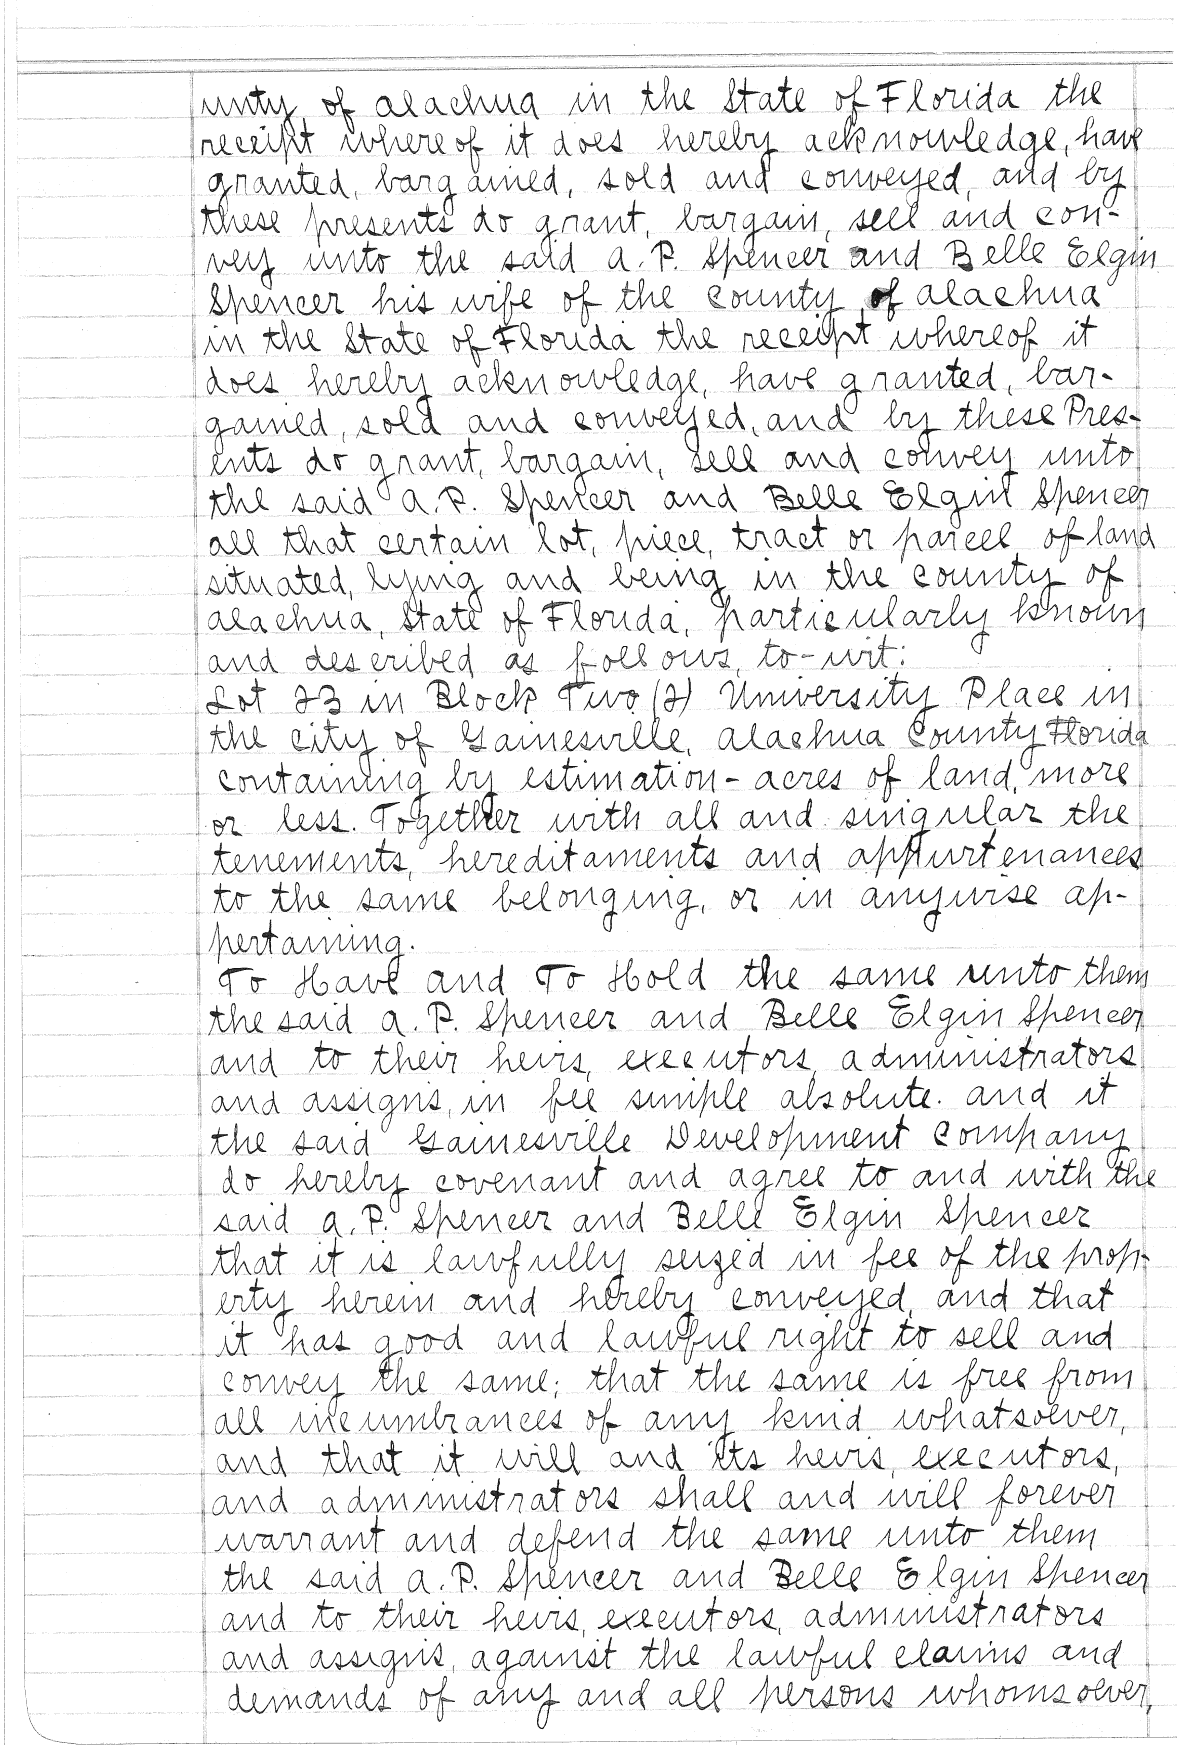 unty, of alachua in the State of Florida the
receipt whereof it does hereby acknowledge, have
granted, bargained, sold and conveyed, and by
these presents do grant, bargain, sell and con-
vey unto the said a. P. Spencer and Belle Elgin
Spencer his wife of the county of alachua
in the State of Florida the receipt whereof it
does hereby acknowledge, have granted, bar-
gained, sold and conveyed, and by these Pres-
ents do grant, bargain, sell and convey unto
the said a. P. Spencer and Belle Elgin Spencer
all that certain lot, piece, tract or parcel of land
situated, lying and being in the county of
alachua, State of Florida, particularly known
and described as follows, to-wit:
Lot 23 in Block Two (2) University Place in
the city of Gainesville, alachua County Florida
containing by estimation - acres of land, more
or less. Together with all and singular the
tenements, hereditaments and appurtenances
to the same belonging, or in anywise ap-
pertaining.
To Have and To Hold the same unto them
the said a. P. Spencer and Belle Elgin Spencer
and to their heirs, executors, administrators
and assigns, in fee simple absolute. and it
the said Gainesville Development Company
do hereby covenant and agree to and with the
said a. P. Spencer and Belle Elgin Spencer
that it is lawfully seized in fee of the prop-
erty herein and hereby conveyed, and that
it has good and lawful right to sell and
convey the same; that the same is free from
all incumbrances of any kind whatsoever,
and that it will and its heirs, executors,
and administrators shall and will forever
warrant and defend the same unto them
the said a. P. Spencer and Belle Elgin Spencer
and to their heirs, executors, administrators
and assigns, against the lawful claims and
demands of any and all persons whomsoever,